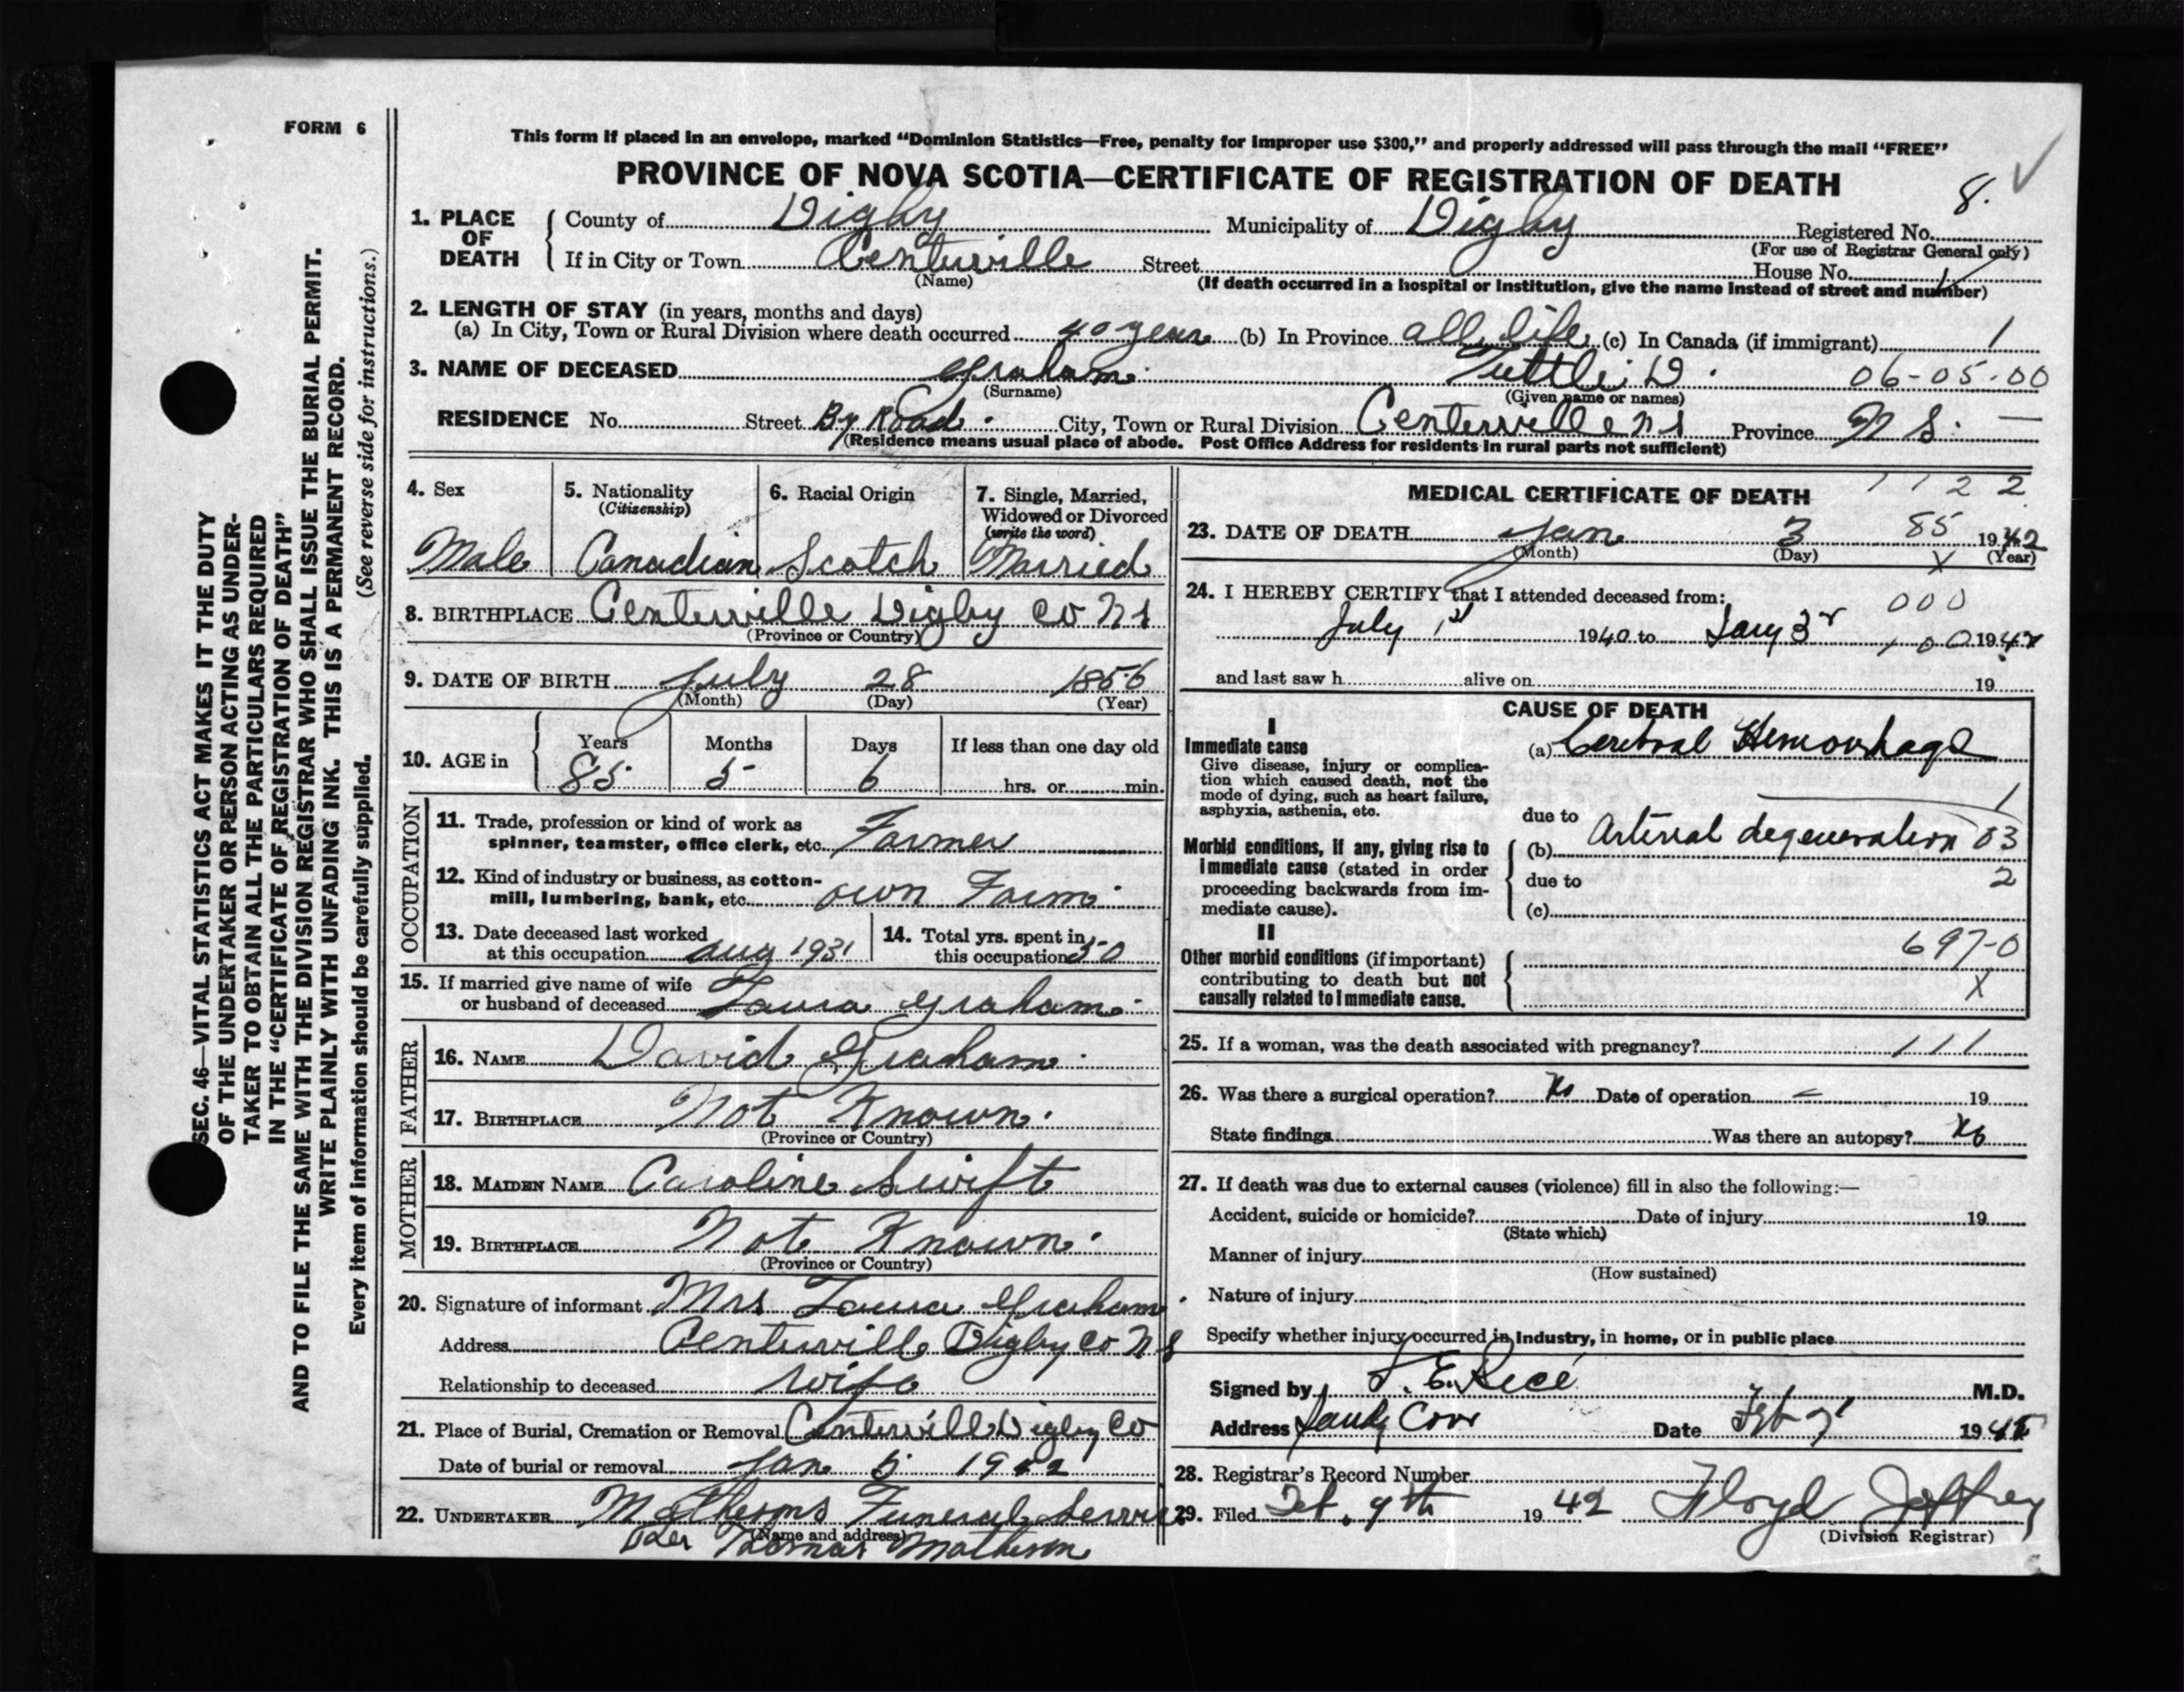 FORM 6
This form if placed in an envelope, marked “Dominion Statistics—Free, penalty for improper use $300,” and properly addressed will pass through the mail “FREE”
PROVINCE OF NOVA SCOTIA—CERTIFICATE OF REGISTRATION OF DEATH
8.
1. PLACE OF DEATH { County of Digby Municipality of Digby Registered No.
(For use of Registrar General only)
If in City or Town Centerville Street House No.
(Name) (If death occurred in a hospital or institution, give the name instead of street and number)
2. LENGTH OF STAY (in years, months and days)
(a) In City, Town or Rural Division where death occurred 40 years (b) In Province all life (c) In Canada (if immigrant) 1
3. NAME OF DECEASED Graham Tuttle D. 06-05-00
(Surname) (Given name or names)
RESIDENCE No. Street By Road City, Town or Rural Division Centerville N S Province N S. —
(Residence means usual place of abode. Post Office Address for residents in rural parts not sufficient)
4. Sex 5. Nationality (Citizenship) 6. Racial Origin 7. Single, Married, Widowed or Divorced (write the word)
Male Canadian Scotch Married
8. BIRTHPLACE Centerville Digby Co N S
(Province or Country)
9. DATE OF BIRTH July 28 1856
(Month) (Day) (Year)
10. AGE in { Years Months Days If less than one day old
85 5 6 hrs. or min.
OCCUPATION
11. Trade, profession or kind of work as
spinner, teamster, office clerk, etc. Farmer
12. Kind of industry or business, as cotton-
mill, lumbering, bank, etc. own Farm
13. Date deceased last worked
at this occupation Aug 1931
14. Total yrs. spent in
this occupation 50
15. If married give name of wife
or husband of deceased Laura Graham
FATHER
16. NAME David Graham
17. BIRTHPLACE Not Known.
(Province or Country)
MOTHER
18. MAIDEN NAME Caroline Swift
19. BIRTHPLACE Not Known.
(Province or Country)
20. Signature of informant Mrs Laura Graham.
Address Centerville Digby Co N S
Relationship to deceased wife
21. Place of Burial, Cremation or Removal Centerville Digby Co
Date of burial or removal Jan 5 1942
22. UNDERTAKER Mathesons Funeral Service
(Name and address)
Per Thomas Matheson
MEDICAL CERTIFICATE OF DEATH 1 1 2 2
23. DATE OF DEATH Jan 3 85 1942
(Month) (Day) X (Year)
24. I HEREBY CERTIFY that I attended deceased from: 000
July 1st 1940 to Jany 3r 100 1942
and last saw h alive on 19
CAUSE OF DEATH
I
Immediate cause (a) Cerebral Hemorrhage
Give disease, injury or complica-
tion which caused death, not the
mode of dying, such as heart failure,
asphyxia, asthenia, etc.
1
due to
Morbid conditions, if any, giving rise to
immediate cause (stated in order
proceeding backwards from im-
mediate cause).
(b) Arterial degeneration 03
due to 2
(c)
II
Other morbid conditions (if important)
contributing to death but not
causally related to immediate cause.
697-0
X
25. If a woman, was the death associated with pregnancy? 111
26. Was there a surgical operation? No Date of operation – 19
State findings Was there an autopsy? No
27. If death was due to external causes (violence) fill in also the following:—
Accident, suicide or homicide? Date of injury 19
(State which)
Manner of injury
(How sustained)
Nature of injury
Specify whether injury occurred in industry, in home, or in public place
Signed by E. Rice M.D.
Address Sandy Cove Date Feb 19
28. Registrar's Record Number
29. Filed Feb. 9th 1942 Floyd Jeffrey
(Division Registrar)
SEC. 46—VITAL STATISTICS ACT MAKES IT THE DUTY
OF THE UNDERTAKER OR PERSON ACTING AS UNDER-
TAKER TO OBTAIN ALL THE PARTICULARS REQUIRED
IN THE “CERTIFICATE OF REGISTRATION OF DEATH”
AND TO FILE THE SAME WITH THE DIVISION REGISTRAR WHO SHALL ISSUE THE BURIAL PERMIT.
WRITE PLAINLY WITH UNFADING INK. THIS IS A PERMANENT RECORD.
Every item of information should be carefully supplied. (See reverse side for instructions.)